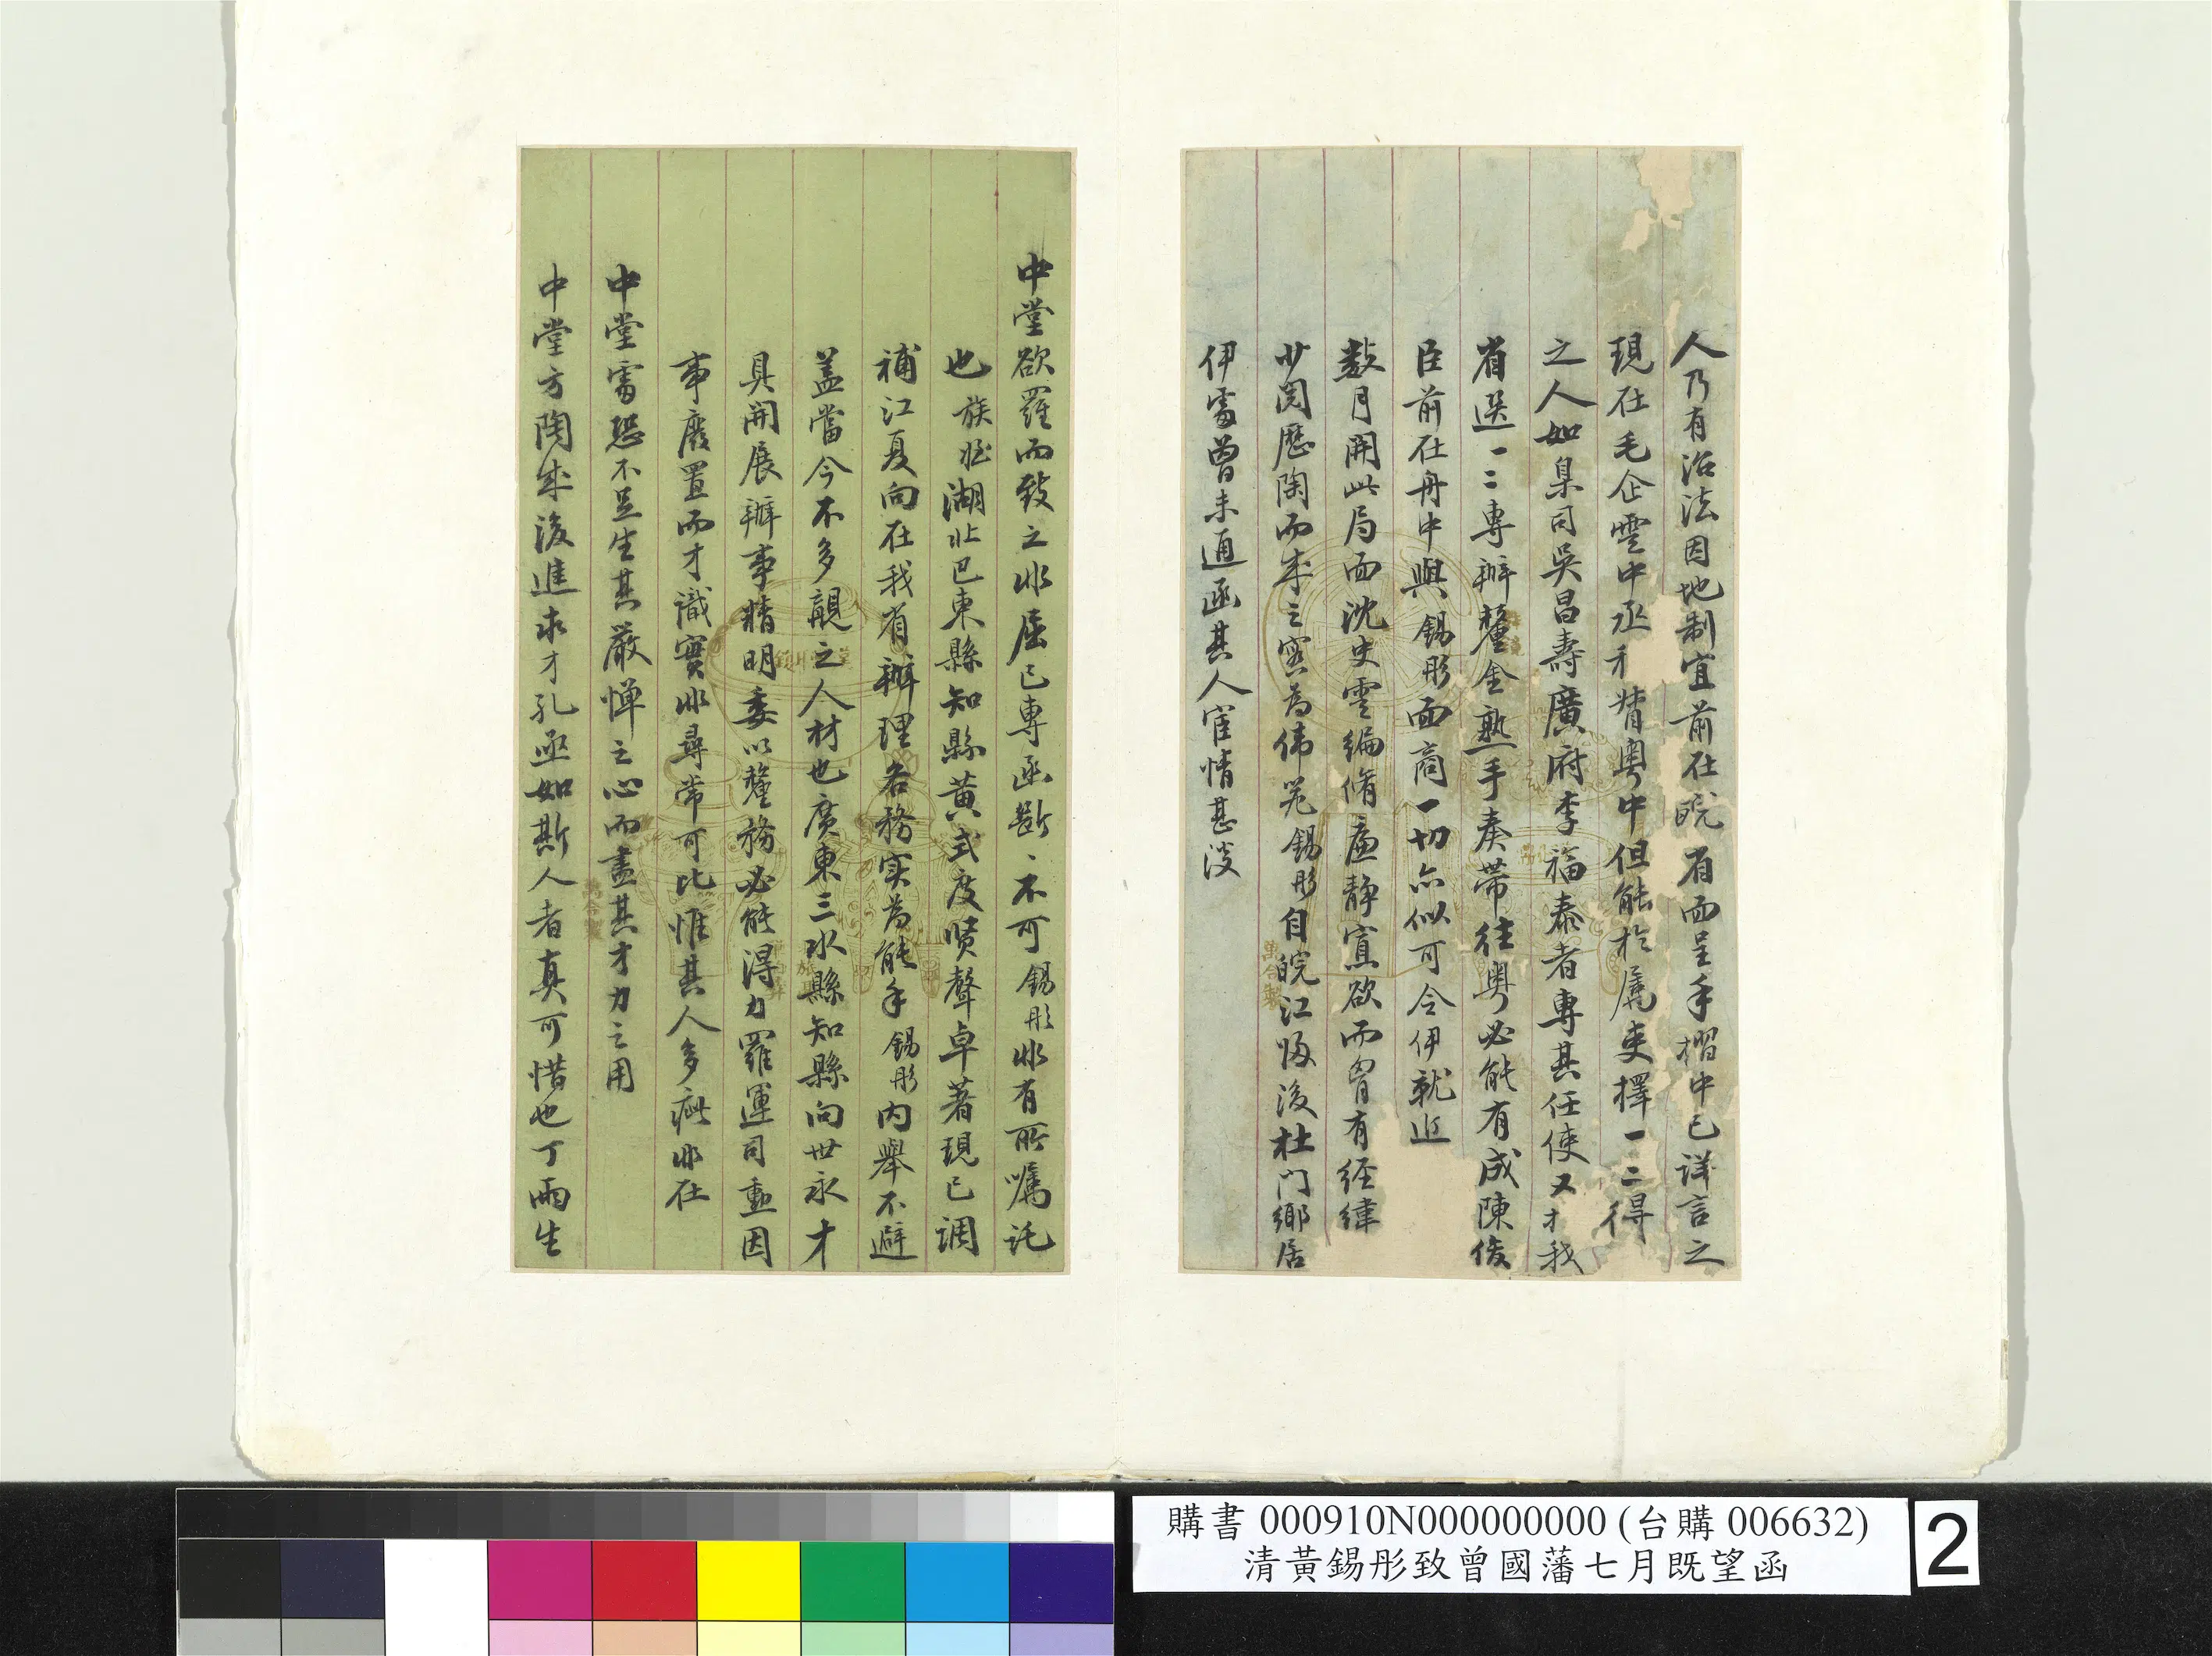 人乃有治法因地制宜前在皖省面呈手摺中已詳言之
現在毛企雲中丞才猾粵中但能於屬吏擇一二得
之人如臬司吳昌壽廣府李福泰者專其任使又才我
省選一二專辦釐金熟手奏帶往粵必能有成陳俊
臣前在舟中與錫彤面商一切亦似可令伊就近
數月開此局面沈史雲編脩廉靜寡欲而胃有經緯
少閱歷陶而成之實為偉器錫彤自皖江歸後杜門鄉居
伊處曾未通函其人宦情甚淡
中堂欲羅而致之非屈已專函斷不可錫彤非有所囑託
也族姪湖北巴東縣知縣黃式度賢聲卓著現已調
補江夏向在我省辦理各務实為能手錫彤內舉不避
蓋當今不多覯之人材也廣東三水縣知縣向世永才
具開展辦事精明委以釐務必能得力羅運司重因
事廢置而才識實非尋常可比惟其人多疵非在
中堂處恐不足生其嚴憚之心而盡其才力之用
中堂方陶成後進求才孔亟如斯人者真可惜也丁雨生
購書 000910N000000000 (台購 006632)
清黃錫彤致曾國藩七月既望函
2